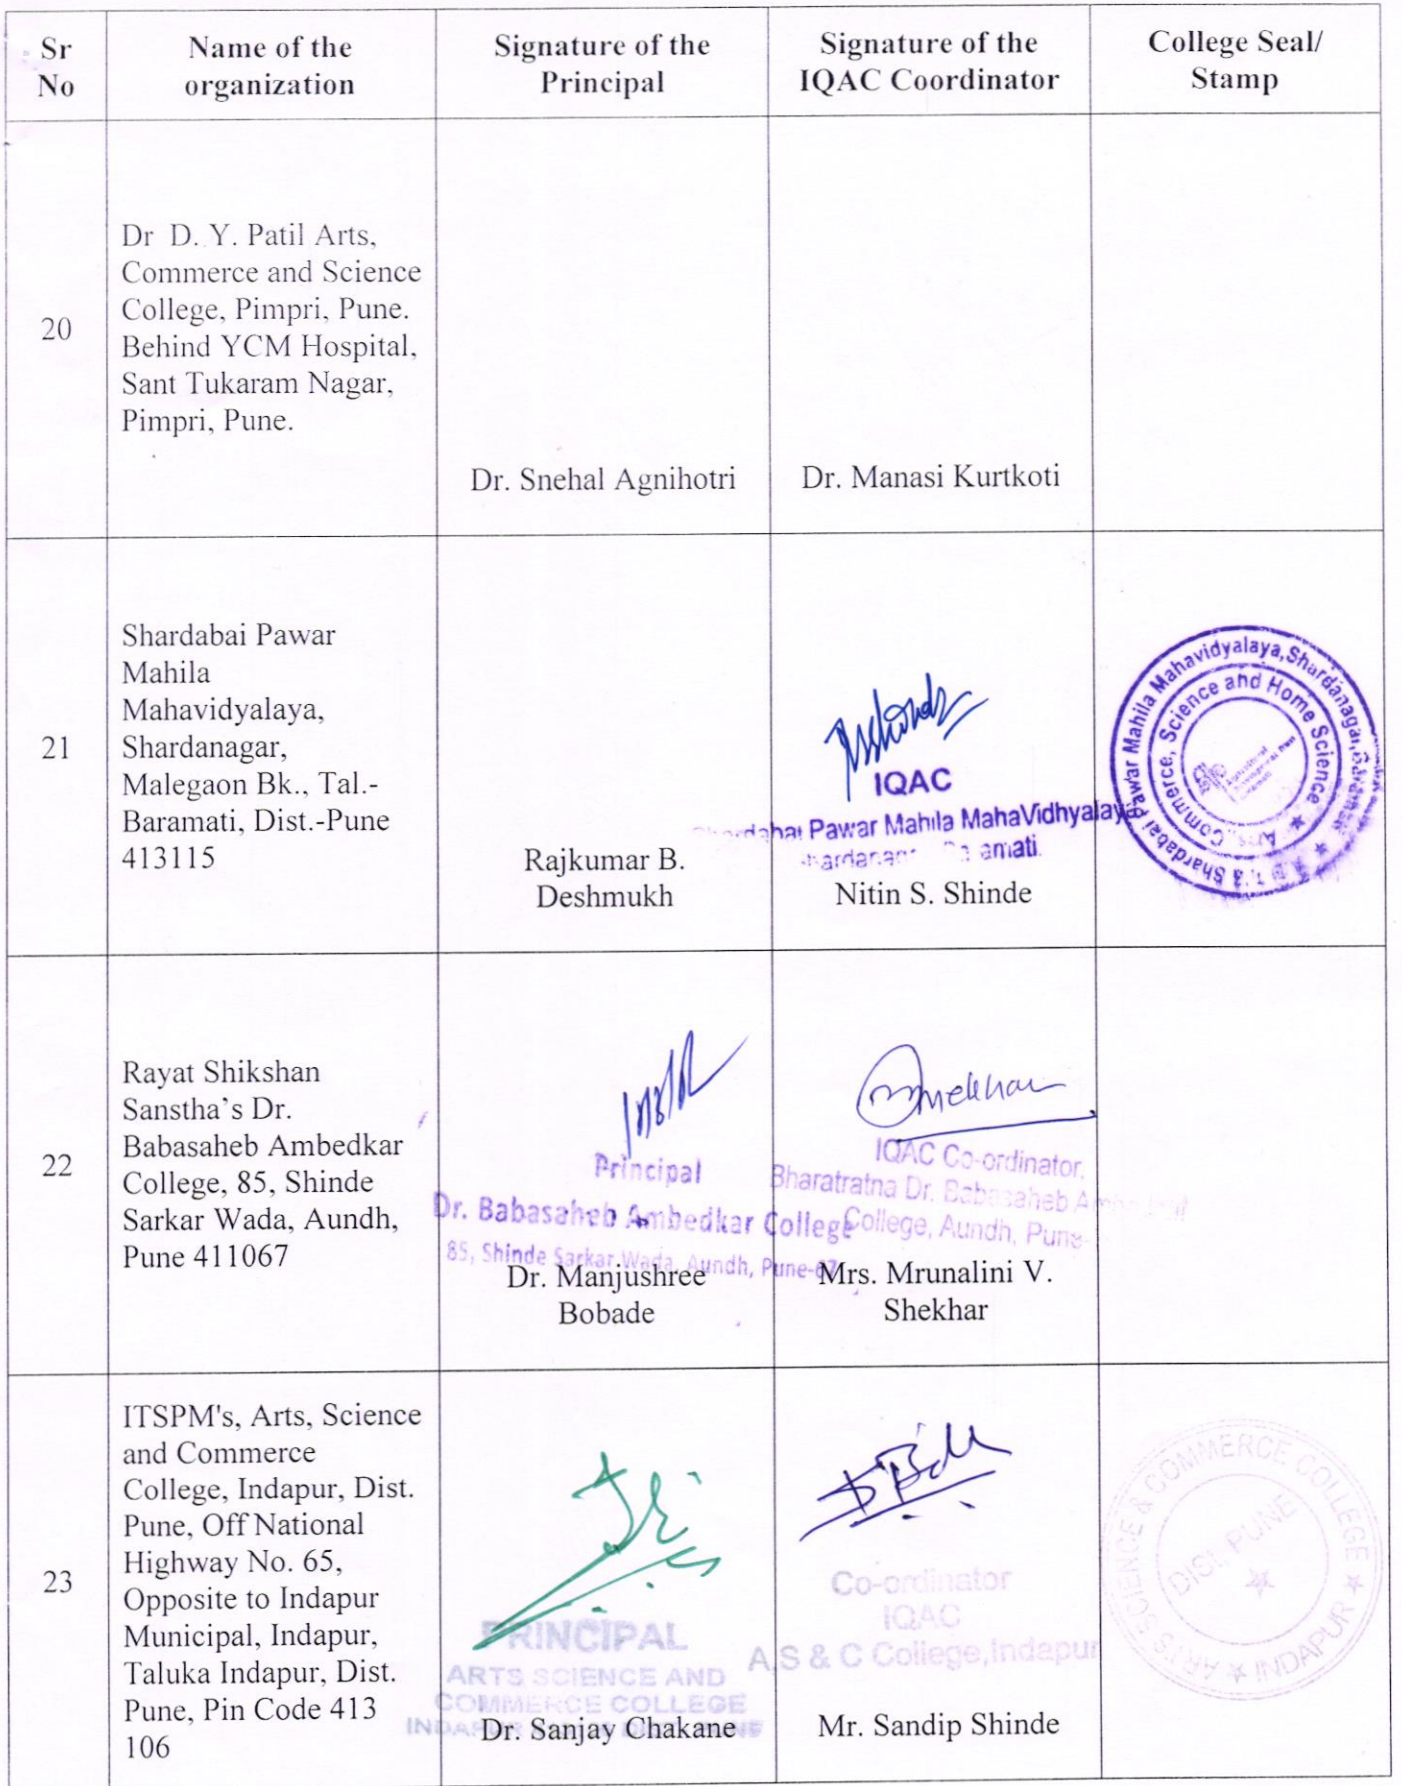 Sr
No
Name of the
organization
Signature of the
Principal
Signature of the
IQAC Coordinator
College Seal/
Stamp
20
Dr D. Y. Patil Arts,
Commerce and Science
College, Pimpri, Pune.
Behind YCM Hospital,
Sant Tukaram Nagar,
Pimpri, Pune.
Dr. Snehal Agnihotri
Dr. Manasi Kurtkoti
21
Shardabai Pawar
Mahila
Mahavidyalaya,
Shardanagar,
Malegaon Bk., Tal.-
Baramati, Dist.-Pune
413115
Rajkumar B.
Deshmukh
IQAC
Pawar Mahila MahaVidhyalaya
Nitin S. Shinde
Shardabai Pawar Mahila Mahavidyalaya, Shardanagar,
Arts, Commerce, Science and Home Science
22
Rayat Shikshan
Sanstha's Dr.
Babasaheb Ambedkar
College, 85, Shinde
Sarkar Wada, Aundh,
Pune 411067
Principal
Dr. Babasaheb Ambedkar College
85, Shinde Sarkar Wada, Aundh, Pune-67
Dr. Manjushree
Bobade
IQAC Co-ordinator.
Bharatratna Dr. Babasaheb
College, Aundh, Pune
Mrs. Mrunalini V.
Shekhar
23
ITSPM's, Arts, Science
and Commerce
College, Indapur, Dist.
Pune, Off National
Highway No. 65,
Opposite to Indapur
Municipal, Indapur,
Taluka Indapur, Dist.
Pune, Pin Code 413
106
PRINCIPAL
ARTS SCIENCE AND
COMMERCE COLLEGE
INDAPUR
Dr. Sanjay Chakane
Co-ordinator
IQAC
A,S & C College,Indapur
Mr. Sandip Shinde
ARTS SCIENCE & COMMERCE COLLEGE
INDAPUR
DIST. PUNE